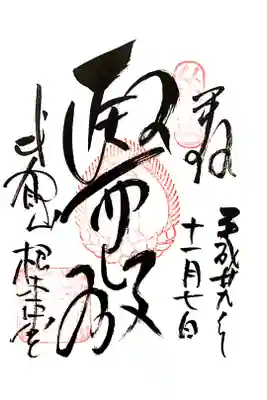 奉拝
平成廿九年
十一月七日
醫王殿
比叡山 根本中堂